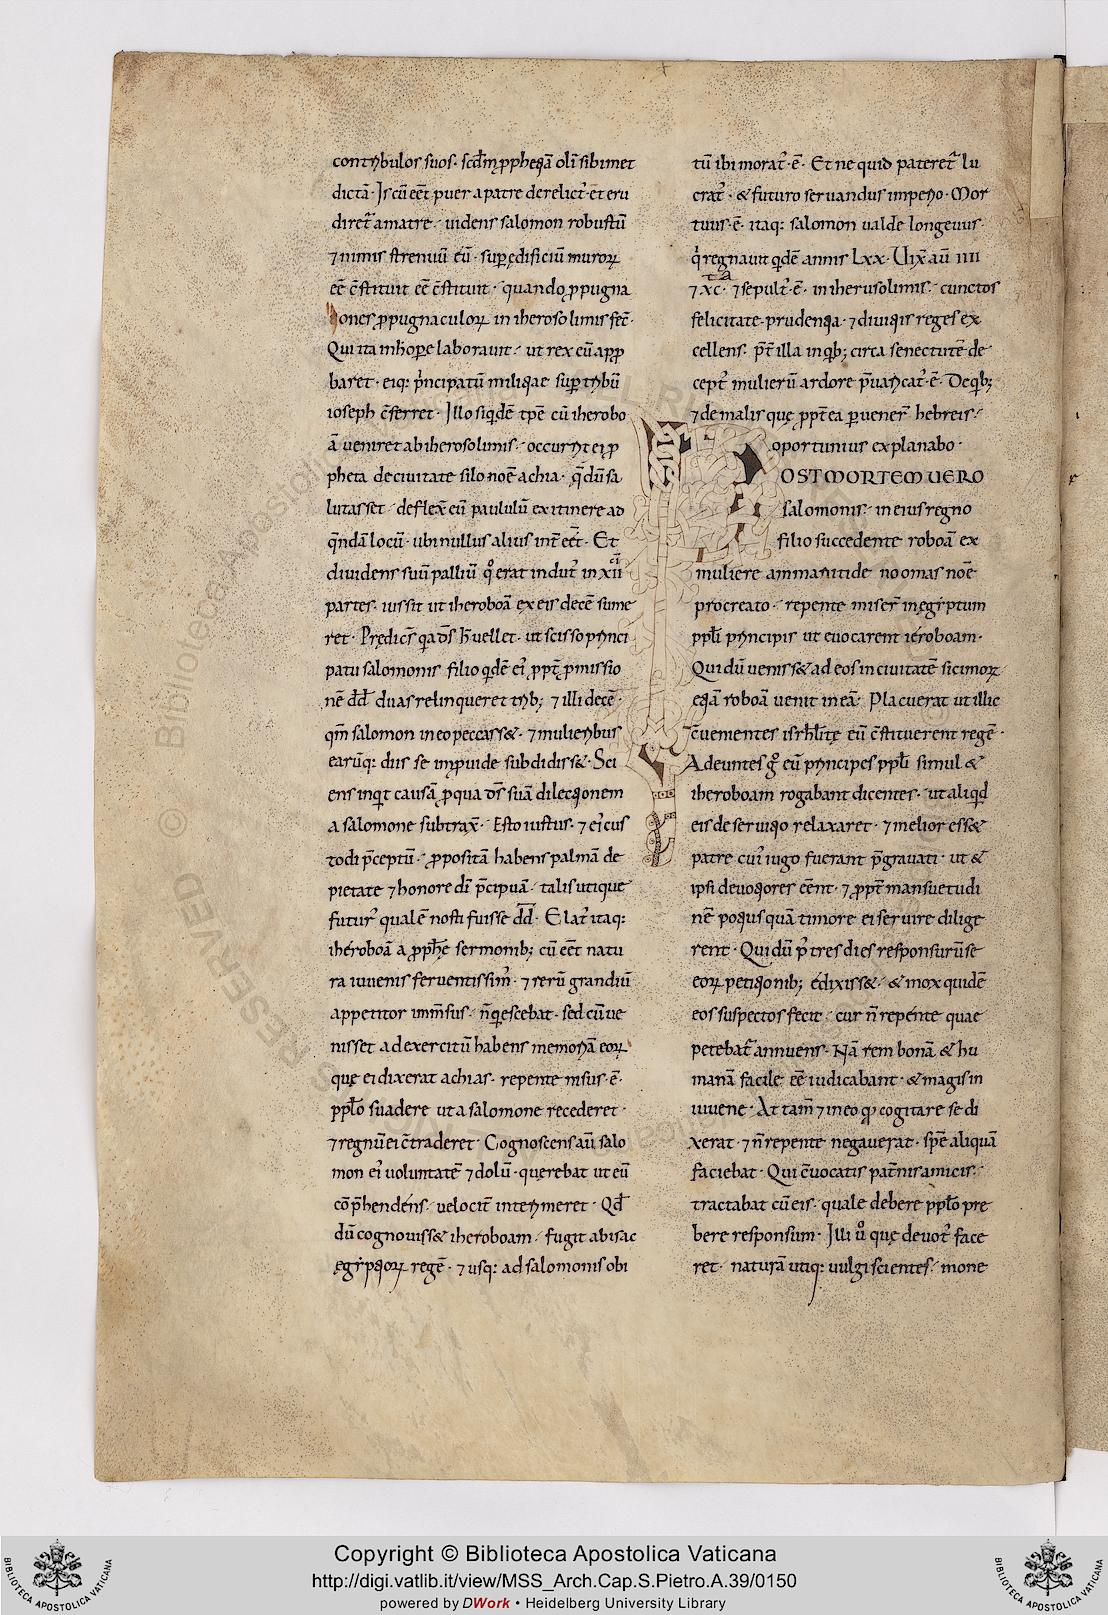 contribulos suos· scd̄m p̱pheꞇiā oli sibimet
dictā· Is cū eēt puer a patre derelict᷒· et eru
diret᷑ a matre· uidens salomon robustū
⁊ nimis strenuū eū· sup̱ ędificiū muroꝝ
eē c̄stituit eē c̄stituit· quando p̱pugna
tiones p̱pugnaculoꝝ in iherosolimis fec̄·
Qui ita in h̄ ope laborauit· ut rex eū app̱
baret· eiq; p̄ncipatū miliꞇiae sup̱ tribū
ioseph c̄ferret· Illo siq̇dē tp̄e cū iherobo
ā ueniret ab iherosolimis· occurrit ei p̱
pheta de ciuitate silo noē achia· q̄ dū sa
lutasset· deflex̄ eū paululū ex itinere ad
q̄ndā locū· ubi nullus alius int̄ eēt· Et
diuidens suū palliū q° erat indut᷒ in xii
partes· iussit ut iheroboā ex eis decē sume
ret· Prędicēs q̇a ds̄ h̄ uellet· ut scisso princi
patu salomonis filio q̇dē ei᷒ ppt̄ p̱missio
nē dd̄ duas relinqueret trib; ⁊ illi decē·
qm̄ salomon in eo peccass&· ⁊ mulieribus
earūq; diis se imp̱uide subdidiss&· Sci
ens inq̇t causā p̱ qua ds̄ suā dilecꞇionem
a salomone subtrax̄· Esto iustus· ⁊ ei᷒ cus
todi p̄ceptū· p̱positā habens palmā de
pietate ⁊ honore di᷒ p̄cipuā· talis utique
futur᷒ qualē nosti fuisse dd̄· Elat᷒ itaq;
iheroboā a p̱ph̄ę sermonib; cū eēt natu
ra iuuenis feruentissim᷒· ⁊ rerū grandiū
appetitor imm̄sus· n̄ q̇escebat· sed cū ue
nisset ad exercitū habens memoriā eoꝝ
quę ei dixerat achias· repente nisus·ē·
ppl̄o suadere ut a salomone recederet·
⁊ regnū ei c̄traderet· Cognoscens aū salo
mon ei᷒ uoluntatē ⁊ dolū· querebat ut eū
cōp̄hendens· uelocit̄ interimeret· Qd̄
dū cognouiss& iheroboam· fugit ad isac
ęgipꞇioꝝ regē· ⁊ usq; ad salomonis obi
tū ibi morat᷒·ē· Et ne quid pateret᷑ lu
crat᷒· & futuro seruandus imperio· Mor
tuus·ē· itaq; salomon ualde longeuus·
q̇ regnauit q̇dē annis Lxx· Uix̄ aū iiii
⁊ xc· ⁊ sepult᷒·ē· in iherusolimis· cunctos
felicitate· prudenꞇia· ⁊ diuiꞇiis reges ex
cellens· p̄t̄ illa in q̇b; circa senectutē de
cept᷒ mulierū ardore p̄uaricat᷒·ē· De q̇b;
⁊ de malis quę ppt̄ ea p̱uener̄ hebreis·
oportunius explanabo·
POST MORTEM UERO
salomonis· in eius regno
filio succedente roboā ex
muliere ammanitide noomas noē
procreato· repente miser̄ in ęgiptum
ppl̄i principis ut euocarent ieroboam·
Qui dū ueniss& ad eos in ciuitatē sicimoꝝ
eꞇiā roboā uenit in eā· Placuerat ut illic
c̄uementes isrhl̄itę eū c̄stituerent regē·
Adeuntes g° eū principes ppl̄i simul &
iheroboam rogabant dicentes· ut aliq̇d
eis de seruiꞇio relaxaret· ⁊ melior ess&
patre cui᷒ iugo fuerant p̄grauati· ut &
ipsi deuoꞇiores eēnt· ⁊ ppt̄ mansuetudi
nē poꞇius quā timore ei seruire dilige
rent· Qui dū p᷒ tres dies responsurū se
eoꝝ peꞇiꞇionib; edixiss&· & mox quidē
eos suspectos fecit· cur n̄ repente quae
petebat᷑ annuens· Nā rem bonā & hu
manā facile eē iudicabant· & magis in
iuuene· At tam̄ ⁊ in eo qd̄ cogitare se di
xerat· ⁊ n̄ repente negauerat· spē aliquā
faciebat· Qui c̄uocatis pat̄nis amicis·
tractabat cū eis· quale debere ppl̄o pre
bere responsum· Illi u° quę deuot᷒ face
ret· naturā utiq; uulgi scientes· mone
Copyright © Biblioteca Apostolica Vaticana
http://digi.vatlib.it/view/MSS_Arch.Cap.S.Pietro.A.39/0150
powered by DWork • Heidelberg University Library